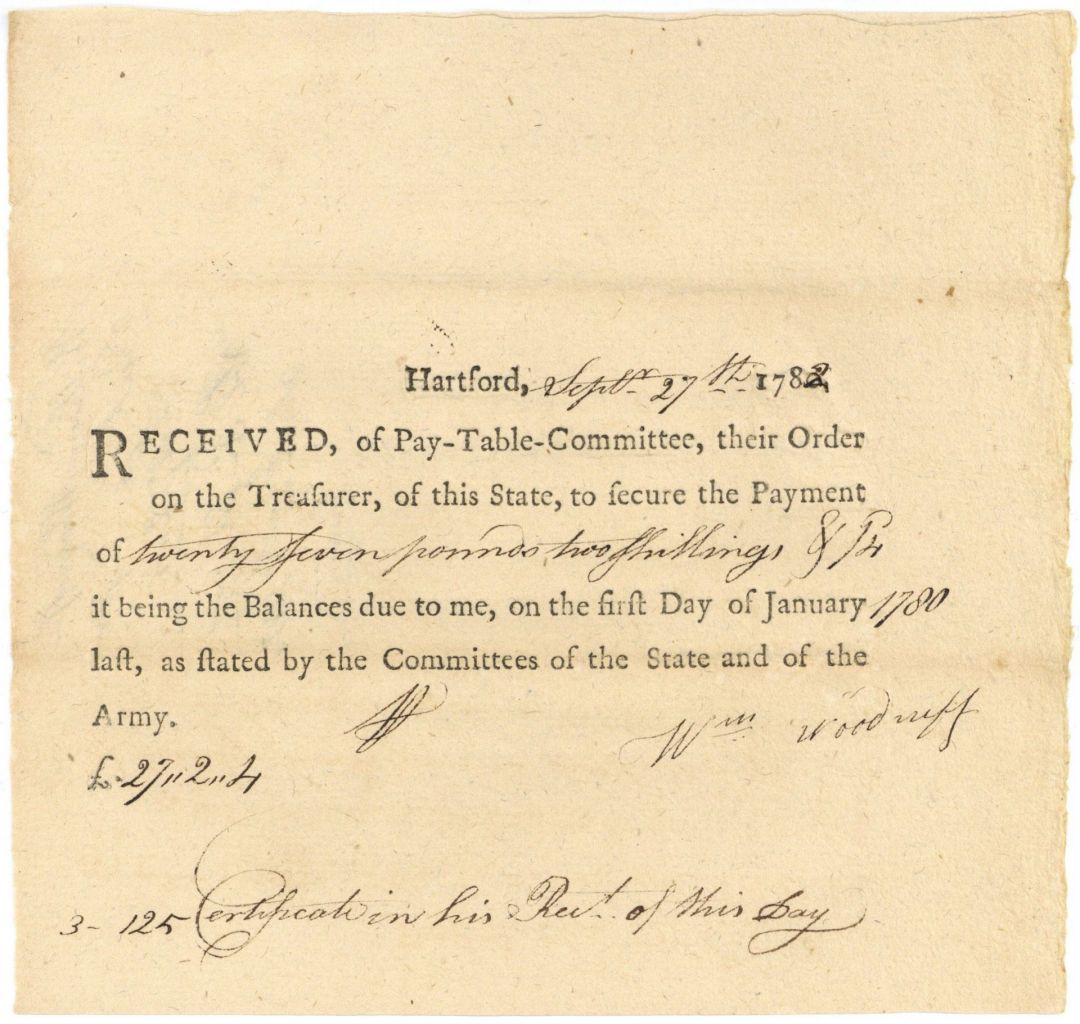 Hartford, Septr. 27th. 1782
RECEIVED, of Pay-Table-Committee, their Order
on the Treaſurer, of this State, to ſecure the Payment
of twenty ſeven pounds two ſhillings & P4
it being the Balances due to me, on the firſt Day of January 1780
laſt, as ſtated by the Committees of the State and of the
Army.
Wm Woodruff
£. 27,,2,,4
3- 125 Certificate in his Rect. of this Day